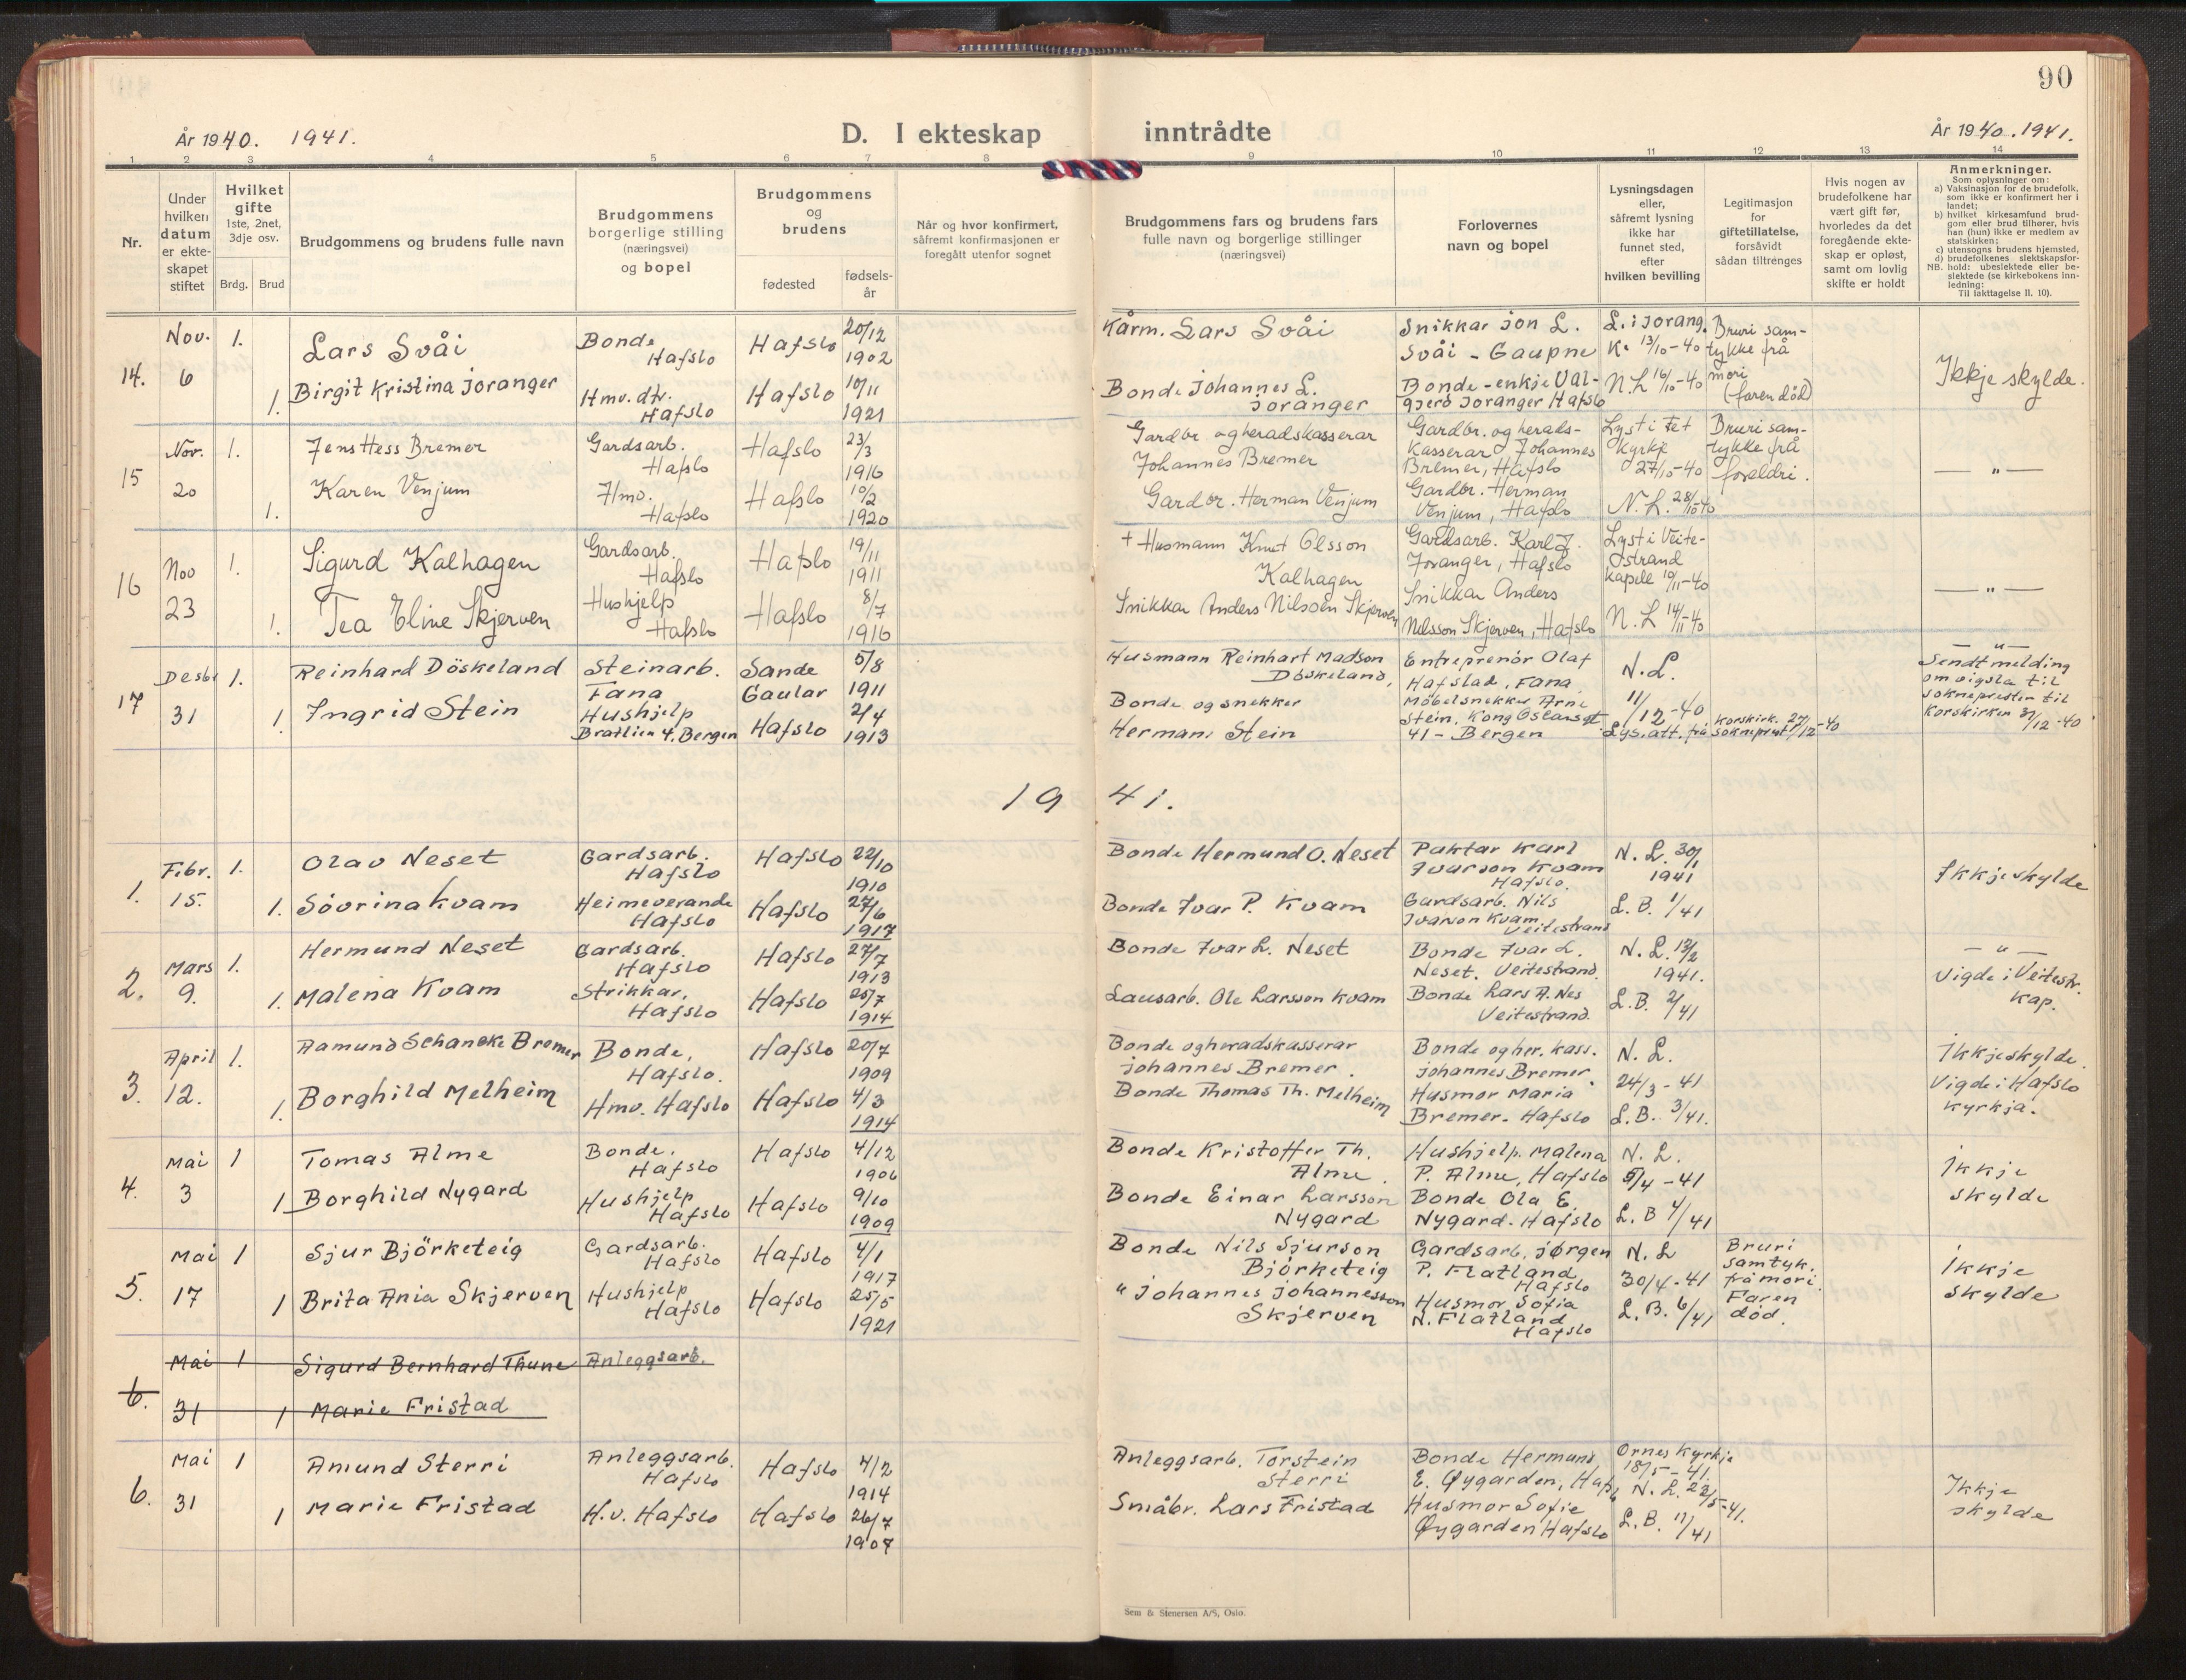 90
År 1940. 1941.
D. I ekteskap
inntrådte
År 1940. 1941.
1 2 3 4 5 6 7 8 9 10 11 12 13 14
Nr.
Under
hvilken
datum
er ekte-
skapet
stiftet
Hvilket
gifte
1ste, 2net,
3dje osv.
Brdg. Brud
Brudgommens og brudens fulle navn
Brudgommens
borgerlige stilling
(næringsvei)
og bopel
Brudgommens
og
brudens
fødested
fødsels-
år
Når og hvor konfirmert,
såfremt konfirmasjonen er
foregått utenfor sognet
Brudgommens fars og brudens fars
fulle navn og borgerlige stillinger
(næringsvei)
Forlovernes
navn og bopel
Lysningsdagen
eller,
såfremt lysning
ikke har
funnet sted,
efter
hvilken bevilling
Legitimasjon
for
giftetillatelse,
forsåvidt
sådan tiltrenges
Hvis nogen av
brudefolkene har
vært gift før,
hvorledes da det
foregående ekte-
skap er opløst,
samt om lovlig
skifte er holdt
Anmerkninger.
Som oplysninger om:
a) Vaksinasjon for de brudefolk,
som ikke er konfirmert her i
landet;
b) hvilket kirkesamfund brud-
gom eller brud tilhører, hvis
han (hun) ikke er medlem av
statskirken;
c) utensogns brudens hjemsted,
d) brudefolkenes slektskapsfor-
NB. hold: ubeslektede eller be-
slektede (se kirkebokens inn-
ledning:
Til Iakttagelse II. 10).
14.
Nov.
6
1.
1.
Lars Svåi
Birgit Kristina Joranger
Bonde
Hafslo
Hmv. dtr.
Hafslo
Hafslo
Hafslo
20/12
1902
10/11
1921
Kårm. Lars Svåi
Bonde Johannes L.
Joranger
Snikkar Jon L.
Svåi - Gaupne
Bonde-enkje Val-
gjerd Joranger Hafslo
L. i Jorang.
K. 13/10-40
N.L 16/10-40
Bruri sam-
tykke frå
mori
(faren död)
Ikkje skylde.
15
Nov.
20
1.
1.
Jens Hess Bremer
Karen Venjum
Gardsarb.
Hafslo
Hmv.
Hafslo
Hafslo
Hafslo
23/3
1916
10/2
1920
Gardbr og heradskasserar
Johannes Bremer
Gardbr. Herman Venjum
Gardbr. og herads-
kasserar Johannes
Bremer, Hafslo
Gardbr. Herman
Venjum, Hafslo
Lyst i Fet
Kyrkje
27/10-40
N. L. 28/10-40
Bruri sam-
tykke frå
foreldri.
— " —
16
Nov
23
1.
1.
Sigurd Kalhagen
Tea Eline Skjerven
Gardsarb.
Hafslo
Hushjelp
Hafslo
Hafslo
Hafslo
19/11
1911
8/7
1916
+ Husmann Knut Olsson
Kalhagen
Snikkar Anders Nilsson Skjerven
Gardsarb. Karl J.
Joranger, Hafslo
Snikkar Anders
Nilsson Skjerven, Hafslo
Lyst i Veite-
strand
kapele 10/11-40
N. L 14/11-40
— " —
17
Desbr
31
1.
1.
Reinhard Döskeland
Ingrid Stein
Steinarb.
Fana
Hushjelp
Bratlien 4. Bergen
Sande
Gaular
Hafslo
5/8
1911
2/4
1913
Husmann Reinhart Madson
Döskeland,
Bonde og snekker
Herman Stein
Entreprenör Olaf
Hafslad, Fana
Möbelsnekker Arne
Stein, Kong Oscarsgt
41 - Bergen
N.L.
11/12-40
Lys. att. frå
Korskirk.
sokneprest 27/12-40
— " —
Sendt melding
om vigsla til
sokneprestin til
Korskirken 31/12-40
1941.
1.
Febr.
15.
1.
1.
Olav Neset
Sövrina Kvam
Gardsarb.
Hafslo
Heimeverande
Hafslo
Hafslo
Hafslo
22/10
1910
27/6
1917
Bonde Hermund O. Neset
Bonde Ivar P. Kvam
Paktar Karl
Ivarson Kvam
Hafslo.
Gardsarb. Nils
Ivarson Kvam.
Veitestrand
N. L. 30/1
1941
L. B. 1/41
Ikkje skylde
2.
Mars
9.
1.
1.
Hermund Neset
Malena Kvam
Gardsarb.
Hafslo
Strikkar.
Hafslo
Hafslo
Hafslo
27/7
1913
25/7
1914
Bonde Ivar L. Neset
Lausarb. Ole Larsson Kvam
Bonde Ivar L.
Neset. Veitestrand.
Bonde Lars A. Nes
Veitestrand.
N. L. 13/2
1941.
L.B. 2/41
— " —
Vigde i Veitestr.
Kap.
3.
April
12.
1.
1.
Aamund Schancke Bremer
Borghild Melheim
Bonde,
Hafslo.
Hmv. Hafslo
Hafslo
Hafslo
20/7
1909
4/3
1914
Bonde og heradskasserar
Johannes Bremer.
Bonde Thomas Th. Melheim
Bonde og her. kass.
Johannes Bremer.
Husmor Maria
Bremer. Hafslo
N. L.
24/3-41
L.B. 3/41.
Ikkje skylde.
Vigde i Hafslo
Kyrkja.
4.
Mai
3
1
1
Tomas Alme
Borghild Nygard
Bonde.
Hafslo
Hushjelp
Hafslo
Hafslo
Hafslo
4/12
1906
9/10
1909
Bonde Kristoffer Th.
Alme.
Bonde Einar Larsson
Nygard
Hushjelp. Malena
P. Alme, Hafslo
Bonde Ola E.
Nygard. Hafslo
N. L.
5/4-41
L. B 4/41
Ikkje
skylde
5.
Mai
17
1
1
Sjur Björketeig
Brita Ania Skjerven
Gardsarb.
Hafslo
Hushjelp
Hafslo
Hafslo
Hafslo
4/1
1917
25/5
1921
Bonde Nils Sjurson
Björketeig
" Johannes Johannesson
Skjerven
Gardsarb. Jørgen
P. Flatland
Hafslo
Husmor Sofia
N. Flatland
Hafslo
N. L
30/4-41
L. B. 6/41
Bruri
samtyk.
frå mori.
Faren
död.
Ikkje
skylde
6.
Mai
31
1
1
Sigurd Bernhard Thune
Marie Fristad
Anleggsarb.
6.
Mai
31
1
1
Amund Sterri
Marie Fristad
Anleggsarb.
Hafslo
H.v. Hafslo
Hafslo
Hafslo
4/2
1914
26/7
1907
Anleggsarb. Torstein
Sterri
Småbr. Lars Fristad
Bonde Hermund
E. Øygarden, Hafslo
Husmor Sofie
Øygarden Hafslo
Ornes Kyrkje
18/5-41.
N. L. 22/5-41.
L.B. 11/41
Ikkje
skylde
Sem & Stenersen A/S, Oslo.